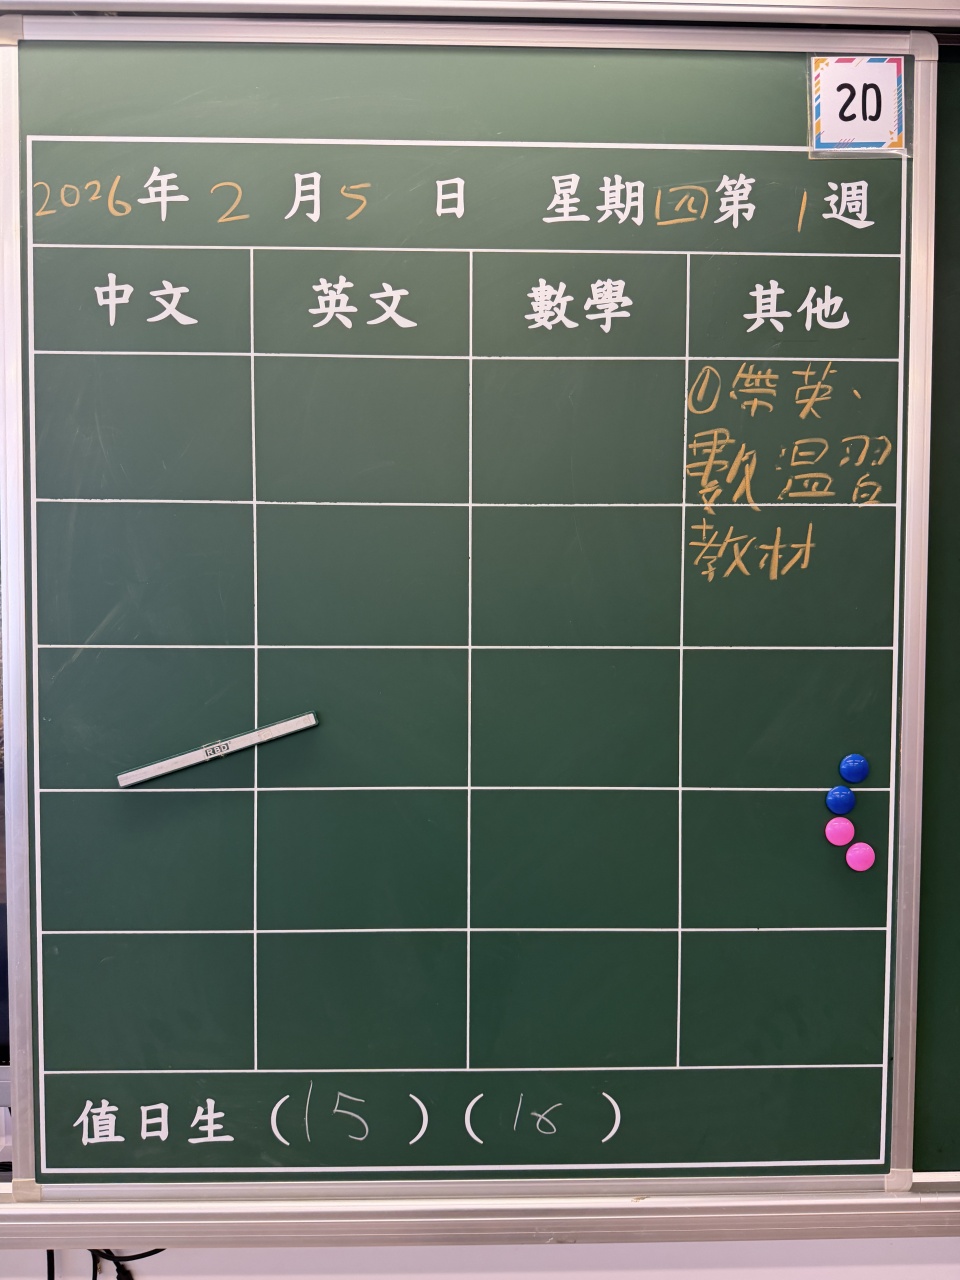 2D
2026年 2 月 5 日 星期四 第 1 週
中文 英文 數學 其他
①帶英、
數溫習
教材
RBD
值日生 (15) (18)